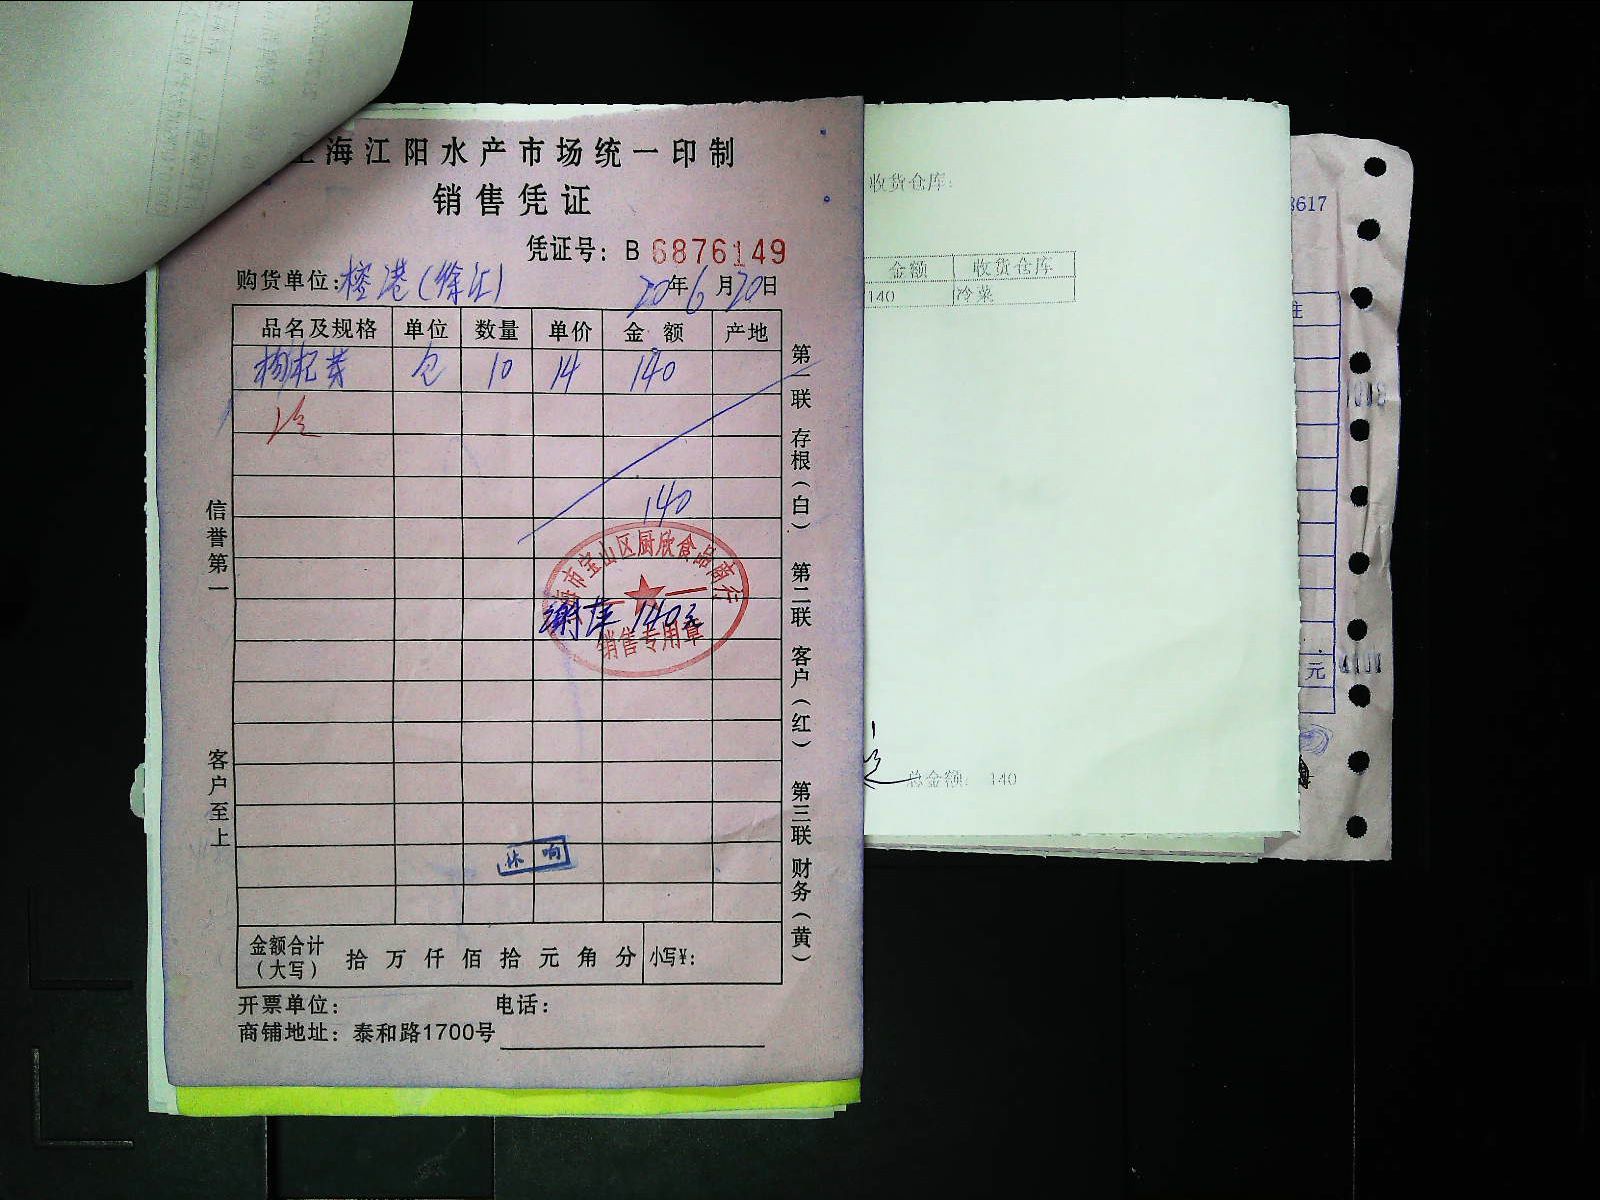 海江阳水产市场统一印制
销售凭证
凭证号：B 6876149
购货单位：榕港（徐汇） 20年6月20日
品名及规格 单位 数量 单价 金额 产地
枸杞芽 包 10 14 140
冷
140
市宝山区厨欣食品商行
谢萍 140元
销售专用章
林响
金额合计（大写） 拾 万 仟 佰 拾 元 角 分 小写¥：
开票单位： 电话：
商铺地址：泰和路1700号
信誉第一
客户至上
第一联 存根（白） 第二联 客户（红） 第三联 财务（黄）
收货仓库：
金额 收货仓库
140 冷菜
总金额： 140
8617
元